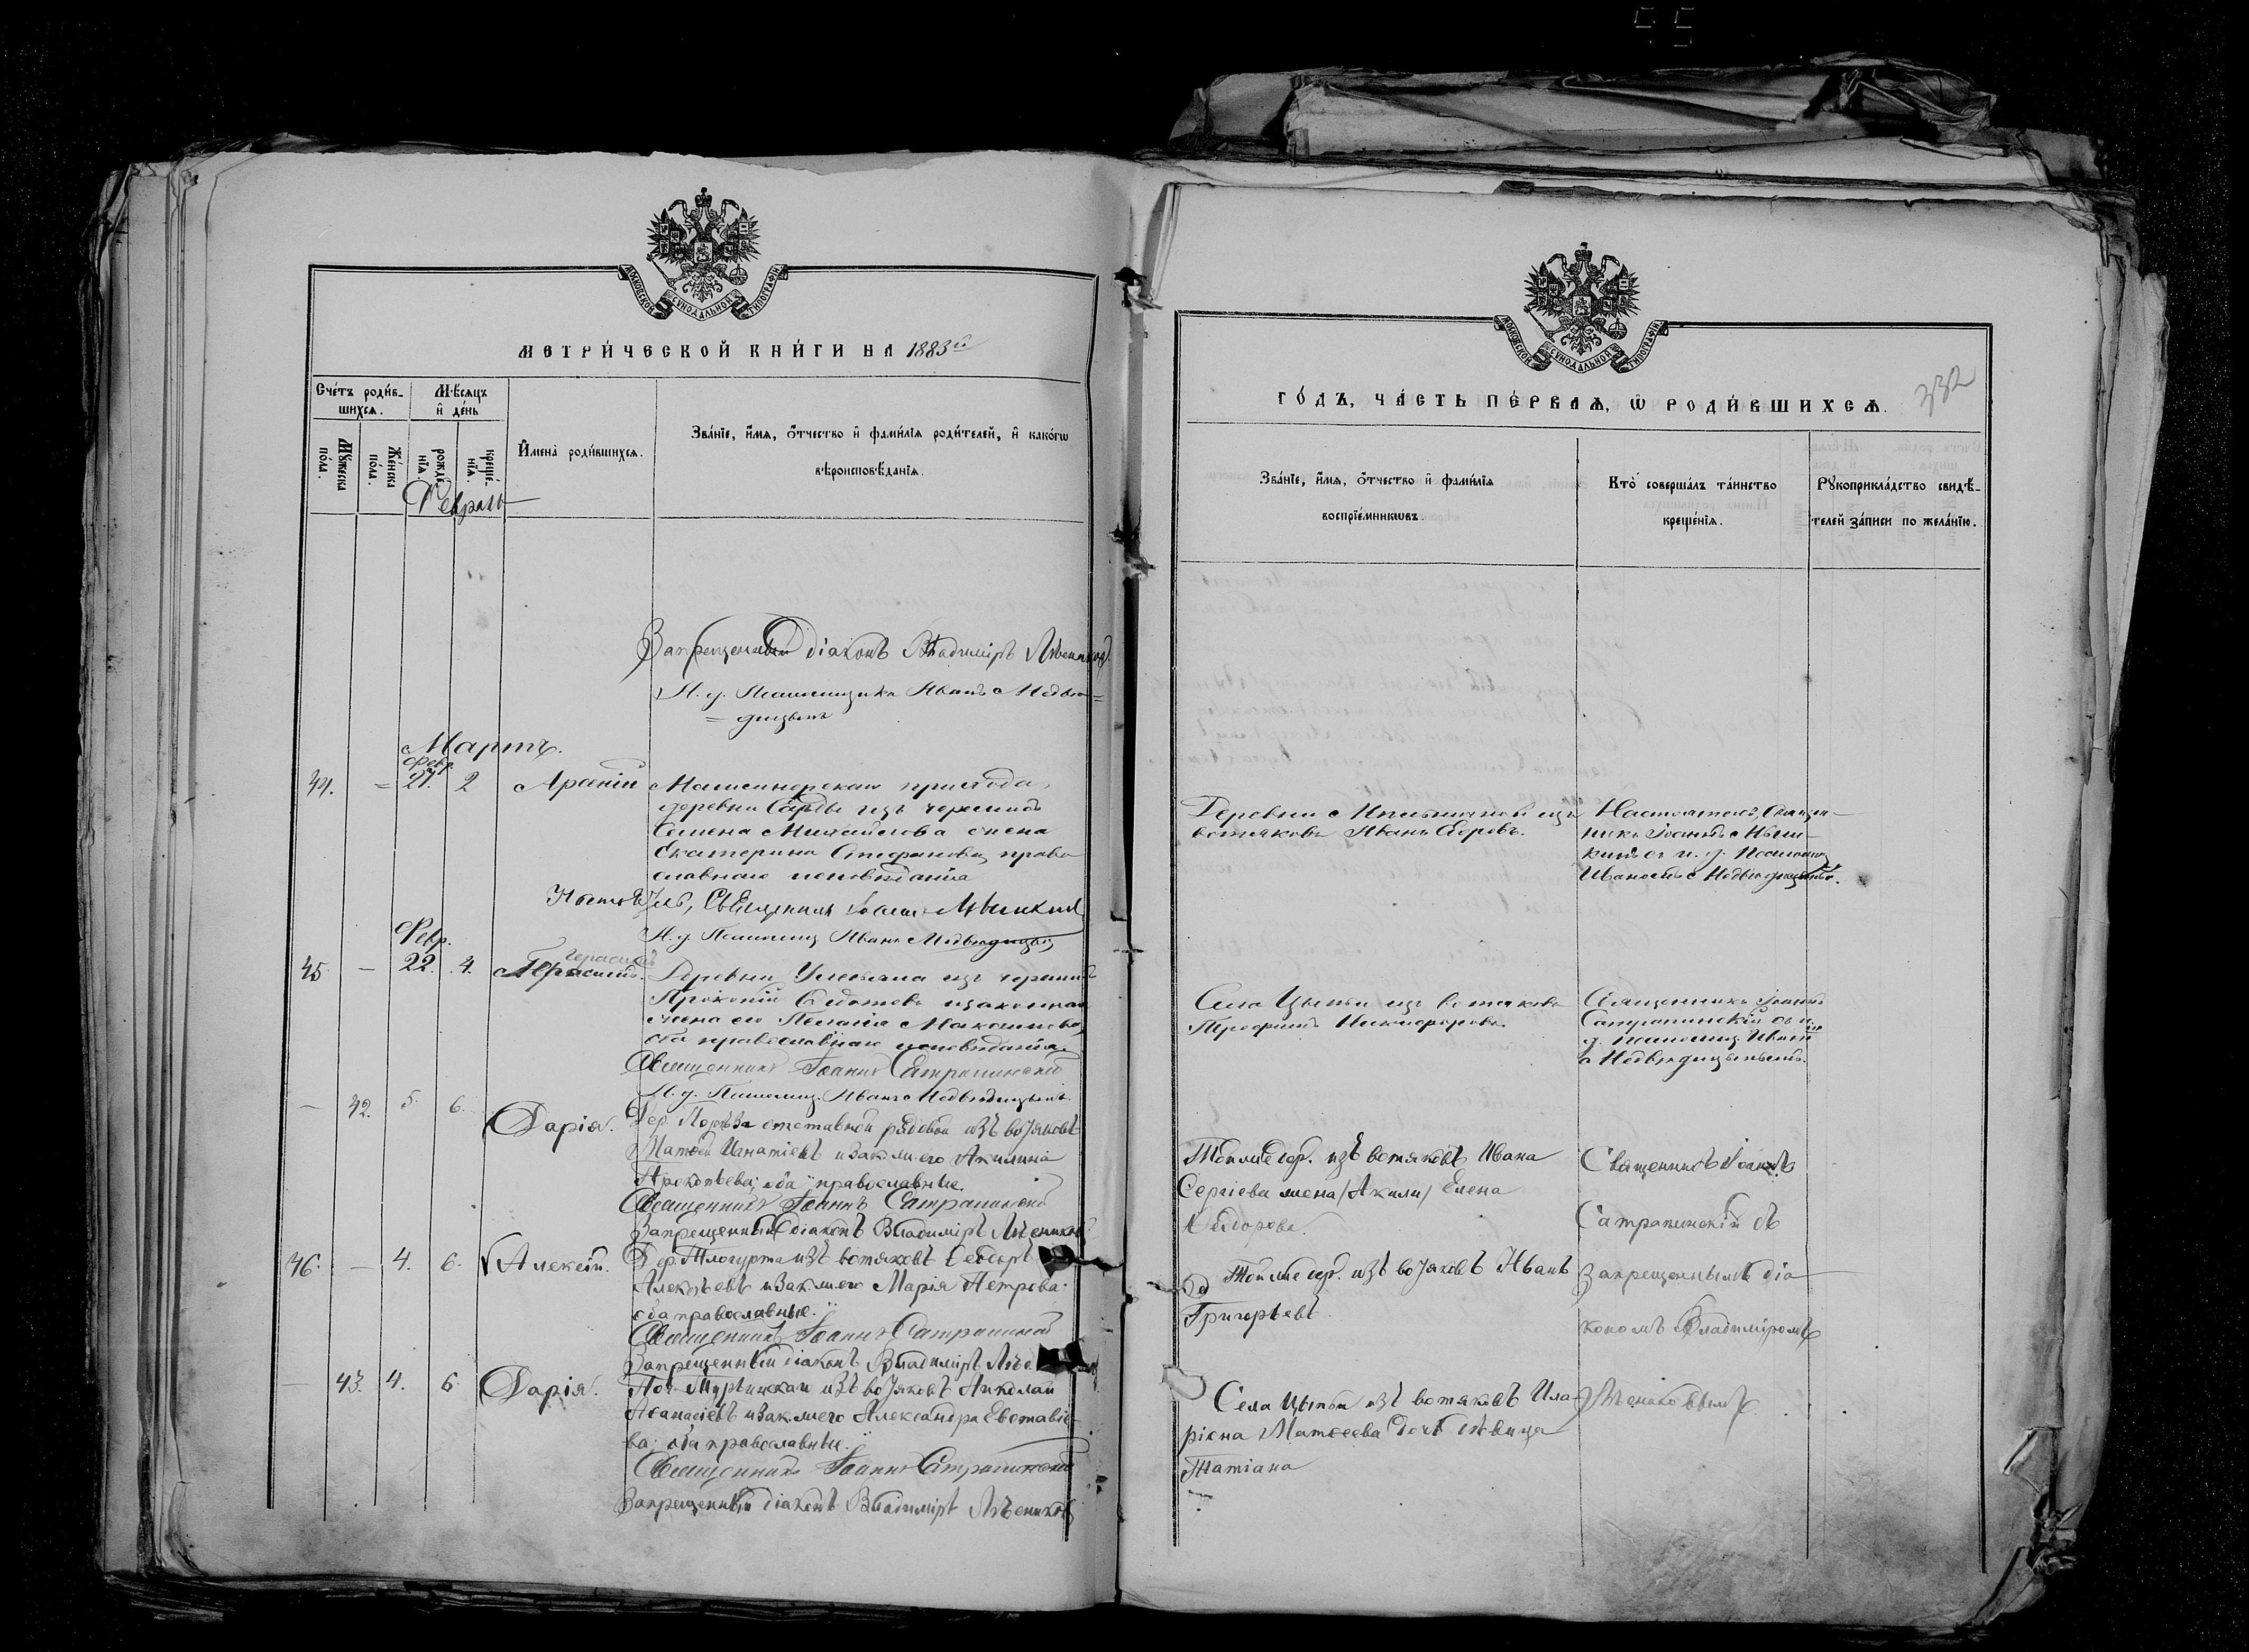 МОСКОВСКОЙ СѴНОДАЛЬНОЙ ТИПОГРАФІИ
МЕТРИ́ЧЕСКОЙ КНИ́ГИ НА 1883й
Сче́тъ роди́в-
шихсѧ.
Мѣ́сѧцъ
и҆ де́нь
Мꙋ́жеска
по́ла.
Же́нска
по́ла.
рожде́-
нїѧ
креще́-
нїѧ.
И҆мена̀ роди́вшихсѧ.
Зва́нїе, и҆́мѧ, ѻ҆́тчество и҆ фами́лїѧ роди́телей, и҆ како́гѡ
вѣроисповѣ́данїѧ.
Февраль
Запрещенный діаконъ Владиміръ
И. д. Псаломщика Иванъ Медвѣ=
=дицынъ
Мартъ.
Февр.
44. = 27. 2 Арсеній
прихода,
деревни Сарды изъ черемисъ
Семена Михайлова жена
Екатерина Стефанова, право
славнаго исповѣданія
Священникъ Іоаннъ
И. д. Псаломщ Иванъ Медвѣдицынъ
Февр.
Герасимъ
45 — 22. 4. Герасимъ. Деревни изъ черемисъ
Прокопій Ѳедотовъ и законная
жена его Пелагія Максимова,
оба православнаго исповѣданія.
Священникъ Іоаннъ Сатрапинскій
И. д. Псаломщ. Иванъ Медвѣдицынъ.
— 42. 5. 6. Дарія. Дер. отставной рядовой изъ вотяковъ
Матѳей Игнатіевъ и зак. ж. его Акилина
Прокопьева; оба православные.
Священникъ Іоаннъ Сатрапинскій
Запрещенный діаконъ Владиміръ
46. — 4. 6. Алексій. Дер. изъ вотяковъ Ѳеодоръ
Алексѣевъ и зак. ж. его Марія Петрова:
оба православные.
Священникъ Іоаннъ Сатрапинскій
Запрещенный діаконъ Владиміръ
— 43. 4. 6 Дарія. Поч. изъ вотяковъ Николай
Аѳанасіевъ и зак. ж. его Александра Евставіе-
ва; оба православные.
Священникъ Іоаннъ Сатрапинскій
Запрещенный діаконъ Владиміръ
МОСКОВСКОЙ СѴНОДАЛЬНОЙ ТИПОГРАФІИ
332
ГО́ДЪ, ЧА́СТЬ ПЕ́РВАѦ, Ѡ҆ РОДИ́ВШИХСѦ.
Зва́нїе, и҆́мѧ, ѻ҆́тчество и҆ фами́лїѧ
воспрїе́мникѡвъ.
Кто̀ соверша́лъ та́инство
креще́нїѧ.
Рꙋкоприкла́дство свидѣ́-
телей за́писи по жела́нїю.
Деревни изъ
вотяковъ Иванъ Егоровъ.
Настоятель, Священ-
никъ Іоаннъ
съ и. д. Псаломщ
Иваномъ Медвѣдицынымъ.
Села Цыпьи изъ вотяковъ
Трофимъ Никифоровъ.
Священникъ Іоаннъ
Сатрапинскій съ и.
д. псаломщ. Иваномъ
Медвѣдицынымъ.
Той же дер. изъ вотяковъ Ивана
Сергіева жена /Акили/ Елена
Ѳеодорова.
Священникъ Іоаннъ
Сатрапинскій съ
Той же дер. изъ вотяковъ Иванъ
Григорьевъ.
запрещеннымъ діа
кономъ Владиміромъ
Села Цыпьи изъ вотяковъ Ила-
ріона Матѳеева дочь дѣвица
Татіана